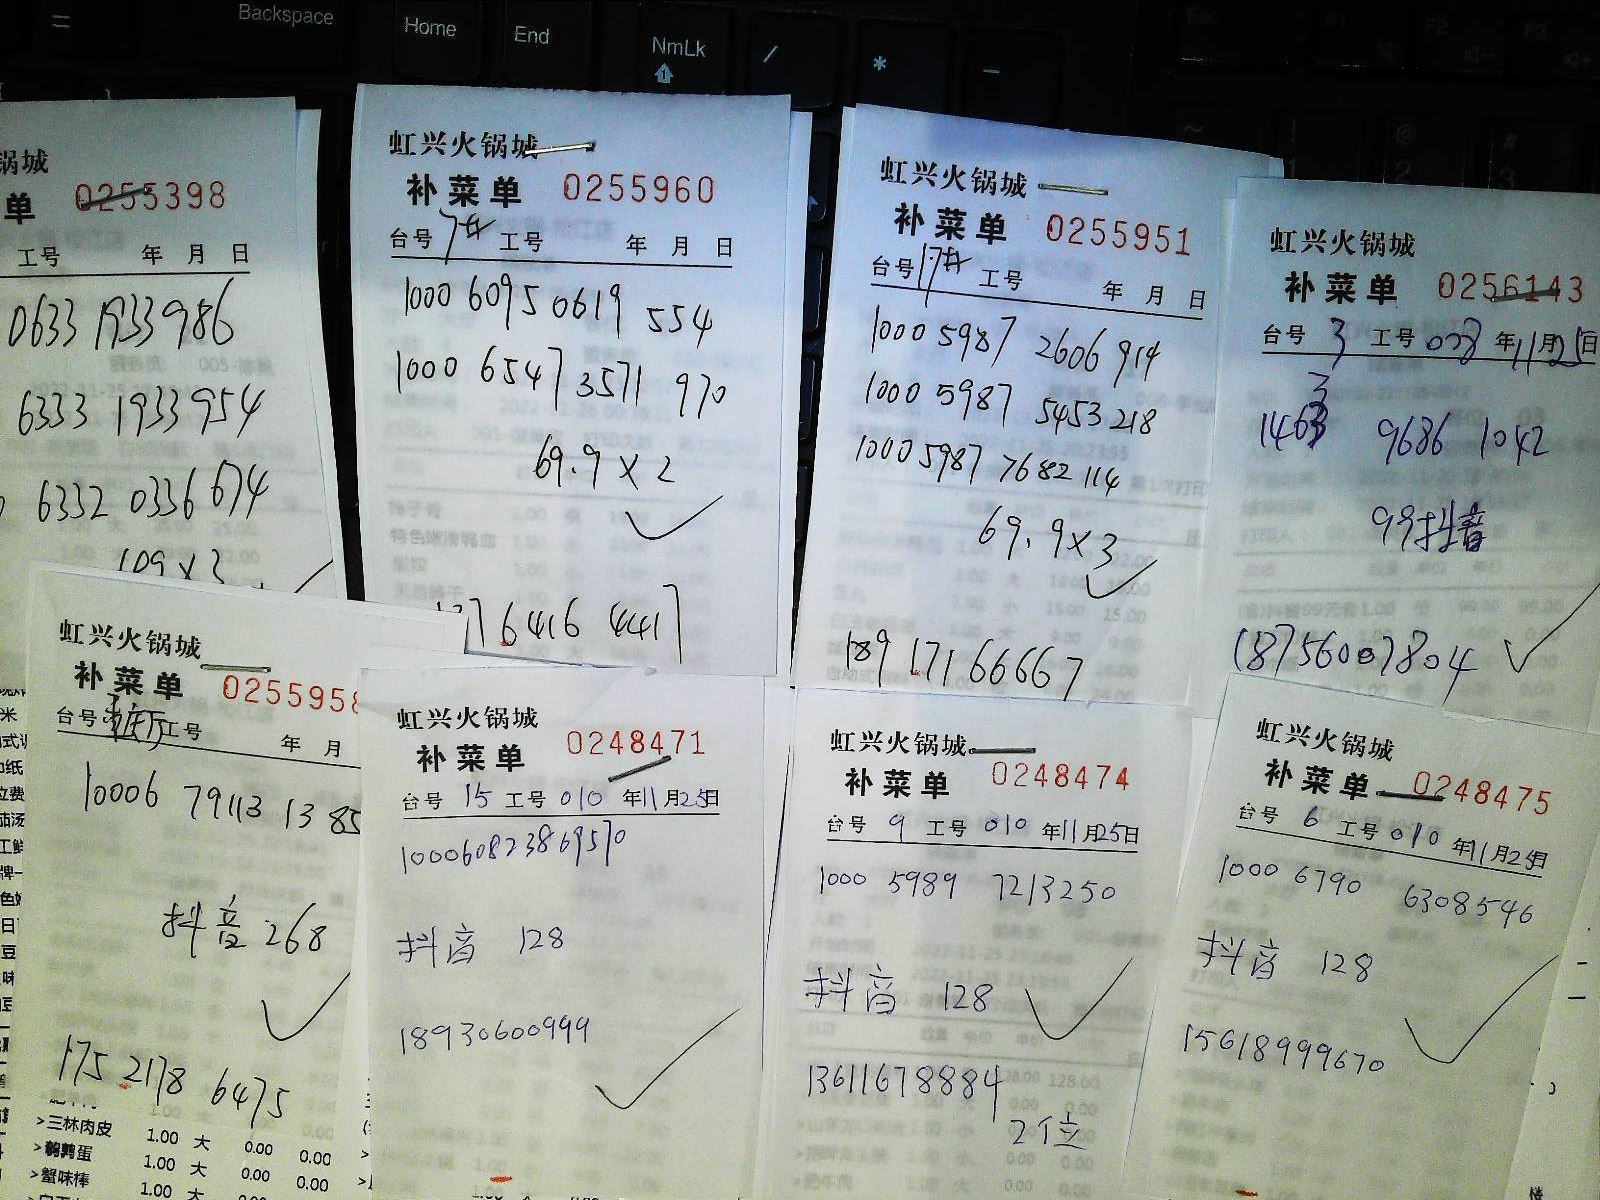 Backspace
Home
End
NmLk
锅城
单 0255398
工号 年 月 日
0633 1933986
6333 1933954
6332 0336674
109×3
虹兴火锅城
补菜单 0255960
台号 7# 工号 年 月 日
1000 6095 0619 554
1000 6547 3571 970
69.9×2
6416 4417
虹兴火锅城
补菜单 0255951
台号 17# 工号 年 月 日
1000 5987 2606 914
1000 5987 5453 218
1000 5987 7682 114
69.9×3
189 17166667
虹兴火锅城
补菜单 0256143
台号 3 工号 008 年11月25日
9686 1042
99抖音
18756007804
虹兴火锅城
补菜单 0255958
台号 工号 年 月
10006 79113 1385
抖音 268
175 2178 6475
>三林肉皮 1.00 大 0.00 0.00
>鹌鹑蛋 1.00 大 0.00 0.00
>蟹味棒 1.00 大 0.00 0.00
虹兴火锅城
补菜单 0248471
台号 15 工号 010 年11月25日
100060823869570
抖音 128
18930600999
虹兴火锅城
补菜单 0248474
台号 9 工号 010 年11月25日
1000 5989 7213250
抖音 128
13611678884
2位
虹兴火锅城
补菜单 0248475
台号 6 工号 010 年11月25日
1000 6790 6308546
抖音 128
15618999670